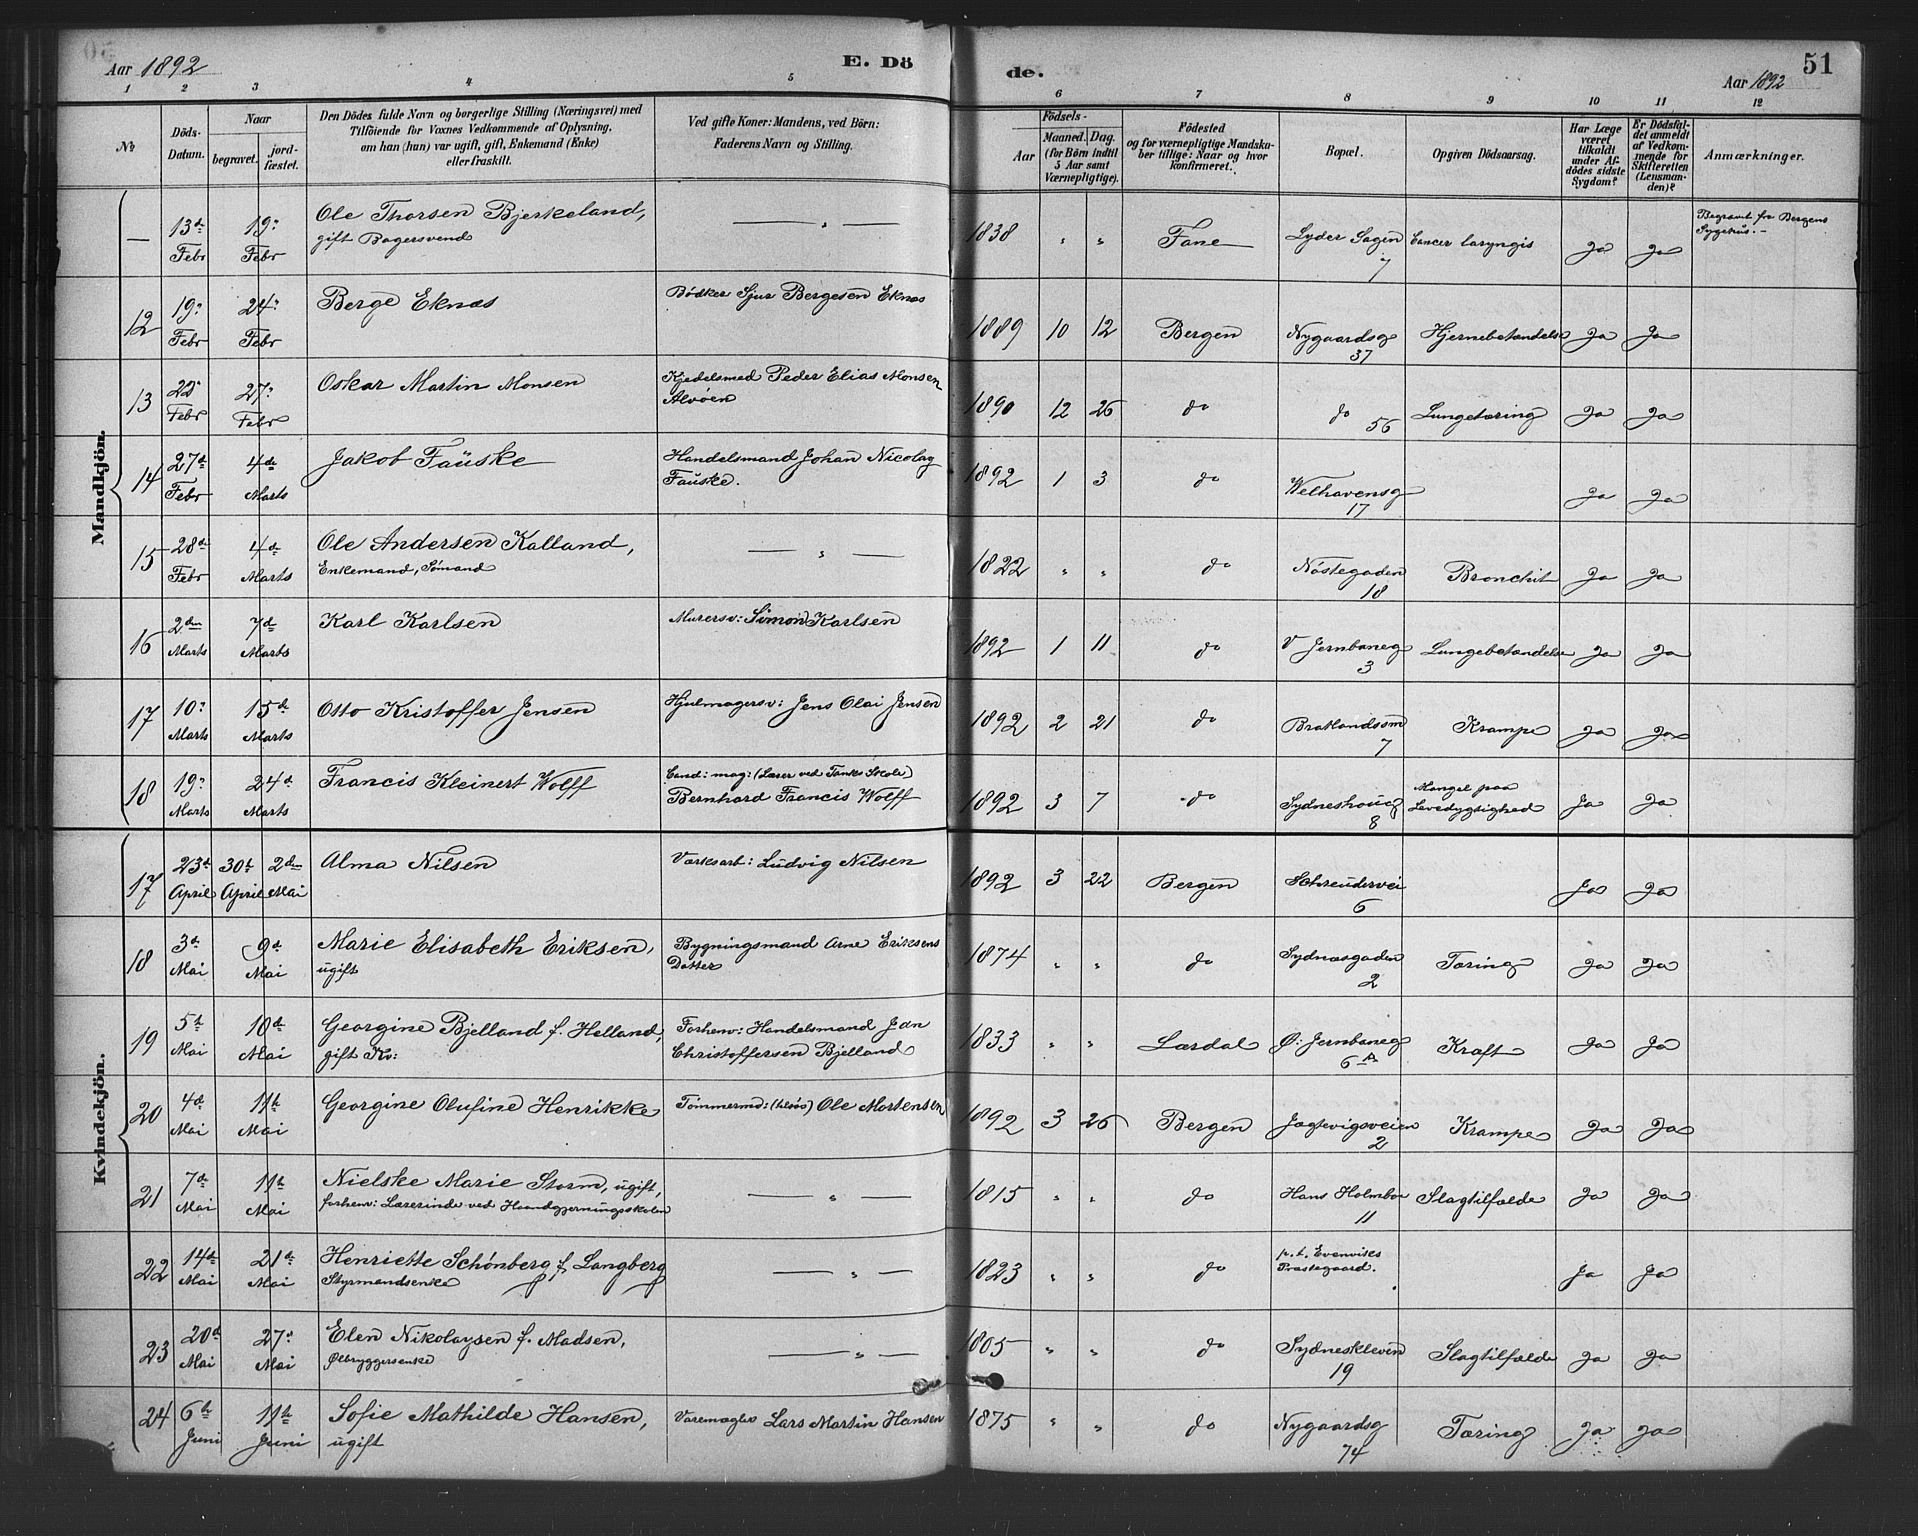 Aar 1892
E. Dö
de.
Aar 1892
51
1 2 3 4 5 6 7 8 9 10 11 12
No
Döds-
Datum.
Naar
begravet.
jord-
fæstet.
Den Dödes fulde Navn og borgerlige Stilling (Næringsvei) med
Tilföiende for Voxnes Vedkommende af Oplysning,
om han (hun) var ugift, gift, Enkemand (Enke)
eller fraskilt.
Ved gifte Koner: Mandens, ved Börn:
Faderens Navn og Stilling.
Födsels-
Aar
Maaned. Dag.
(for Börn indtil
5 Aar samt
Værnepligtige).
Födested
og for værnepligtige Mandska-
ber tillige: Naar og hvor
konfirmeret.
Bopæl.
Opgiven Dödsaarsag.
Har Læge
været
tilkaldt
under Af-
dödes sidste
Sygdom?
Er Dödsfal-
det anmeldt
af Vedkom-
mende for
Skifteretten
(Lensman-
den)?
Anmærkninger.
Mandkjön.
— 13de Febr 19de Febr Ole Thorsen Bjerkeland, — " — 1838 " " Fane Lyder Sagen Cancer laryngis Ja Ja Begravet fra Bergens
gift Bagersvend 7 Sygehus.-
12 19de Febr 24de Febr Berge Eknæs Bödker Sjur Bergesen Eknæs 1889 10 12 Bergen Nygaardsg Hjernebetændelse Ja Ja
37
13 22 Febr 27de Febr Oskar Martin Monsen Kjedelsmed Peder Elias Monsen 1890 12 26 do do Lungetæring Ja Ja
Alvöen 56
14 27de Febr 4de Marts Jakob Fauske Handelsmand Johan Nicolay 1892 1 3 do Welhavensg Ja Ja
Fauske. 17
15 28de Febr 4de Marts Ole Andersen Kalland, — " — 1822 " " do Nöstegaden Bronchit Ja Ja
Enkemand, Sömand 18
16 2den Marts 7de Marts Karl Karlsen Murersv: Simon Karlsen 1892 1 11 do V Jernbaneg Lungebetændelse Ja Ja
3
17 10de Marts 15de Marts Otto Kristoffer Jensen Hjulmagersv: Jens Olai Jensen 1892 2 21 do Bratlandsm Krampe Ja Ja
7
18 19de Marts 24de Marts Francis Kleinert Wolff Cand: mag: (Lærer ved Tanks Skole) 1892 3 7 do Sydneshoug Mangel paa Ja Ja
Bernhard Francis Wolff 8 Levedygtighed
Kvindekjön.
17 23de April 30te April 2den Mai Alma Nilsen Værksarb: Ludvig Nilsen 1892 3 22 Bergen Schreudervei Ja Ja
6
18 3de Mai 9de Mai Marie Elisabeth Eriksen, Bygningsmand Arne Eriksens 1874 " " do Sydnæsgaden Tæring Ja Ja
ugift Datter 2
19 5te Mai 10de Mai Georgine Bjelland f. Helland, Forhenv: Handelsmand Jan 1833 " " Lærdal Ø: Jernbaneg Kræft Ja Ja
gift Kv: Christoffersen Bjelland 6A
20 4de Mai 11te Mai Georgine Olufine Henrikke Tömmermd: Ole Mortensen 1892 3 26 Bergen Jægtevigsveien Krampe Ja Ja
2
21 7de Mai 11te Mai Nielske Marie Storm, ugift, — " — 1815 " " do Hans Holmboe Slagtilfælde Ja Ja
forhenv: Lærerinde ved Haandgjerningsskolen 11
22 14de Mai 21de Mai Henriette Schönberg f. Langberg — " — 1823 " " do p.t. Evenviks Ja Ja
Styrmandsenke Præstegaard.
23 20de Mai 27de Mai Elen Nikolaysen f. Madsen, — " — 1805 " " do Sydneskleven Slagtilfælde Ja Ja
Ølbryggersenke 19
24 6te Juni 11te Juni Sofie Mathilde Hansen, Varemægler Lars Martin Hansen 1875 " " do Nygaardsg Tæring Ja Ja
ugift 74